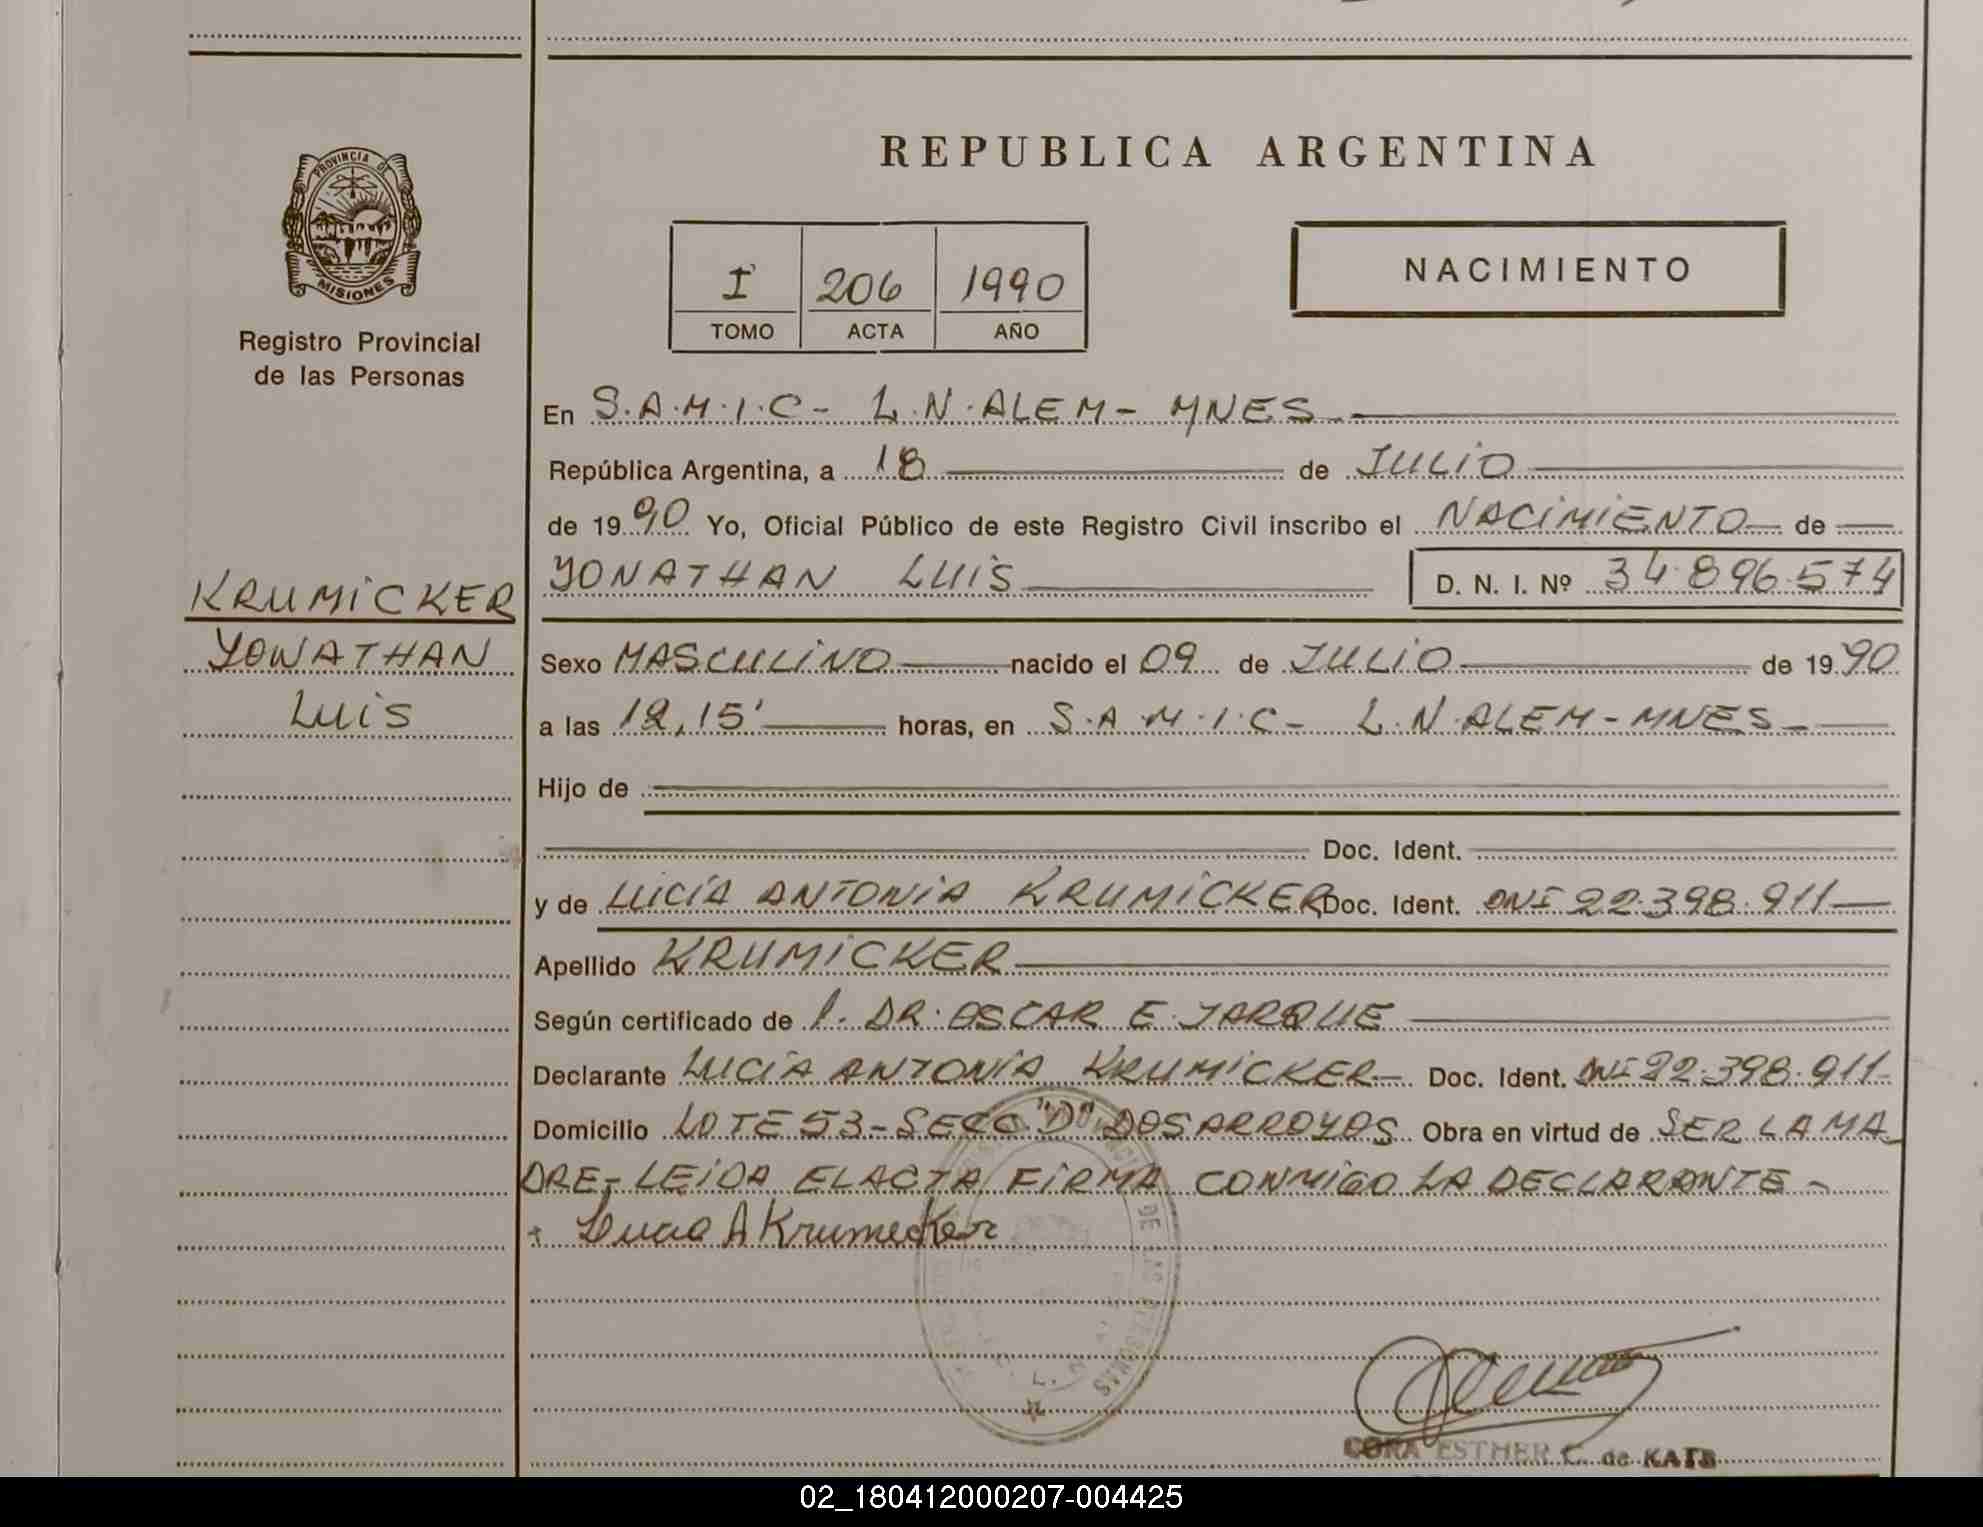 REPUBLICA ARGENTINA
PROVINCIA DE
MISIONES
Registro Provincial
de las Personas
I 206 1990
TOMO ACTA AÑO
NACIMIENTO
En S.A.M.I.C- L.N.ALEM- MNES
República Argentina, a 18 de JULIO
de 1990 Yo, Oficial Público de este Registro Civil inscribo el NACIMIENTO de
YONATHAN LUIS D. N. I. Nº 34.896.574
KRUMICKER
YONATHAN
LUIS
Sexo MASCULINO nacido el 09 de JULIO de 1990
a las 12,15' horas, en S.A.M.I.C- L.N.ALEM-MNES-
Hijo de
Doc. Ident.
y de LUCIA ANTONIA KRUMICKER Doc. Ident. DNI 22.398.911
Apellido KRUMICKER
Según certificado de 1. DR. OSCAR E. JARQUE
Declarante LUCIA ANTONIA KRUMICKER Doc. Ident. DNI 22.398.911
Domicilio LOTE 53-SECC "D" DOS ARROYOS Obra en virtud de SER LA MA
DRE- LEIDA EL ACTA FIRMA CONMIGO LA DECLARANTE-
Lucia A Krumecker
DE LAS PERSONAS
CORA ESTHER C. de KATS
02_180412000207-004425